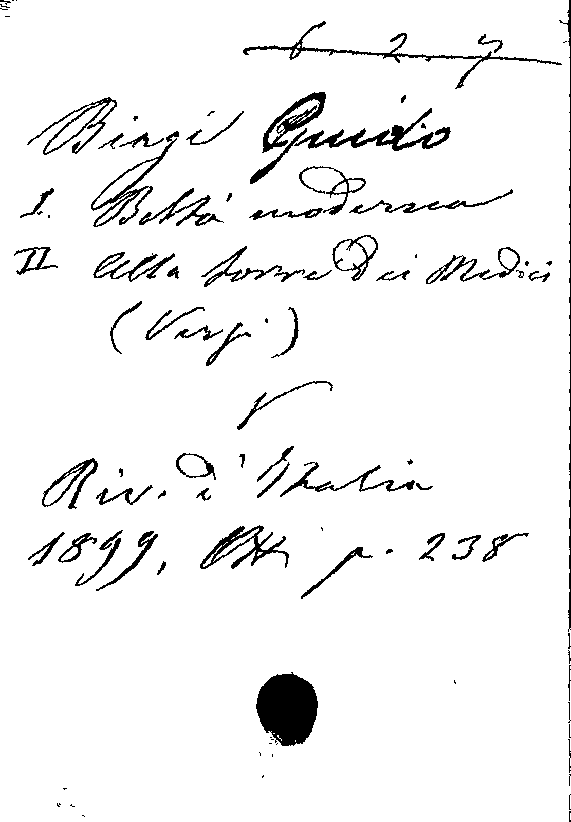 6. 2. 7
Biagi Guido
I. Beltà moderna
II Alla torre dei Medici
(Versi)
V
Riv. d'Italia
1899, p. 238